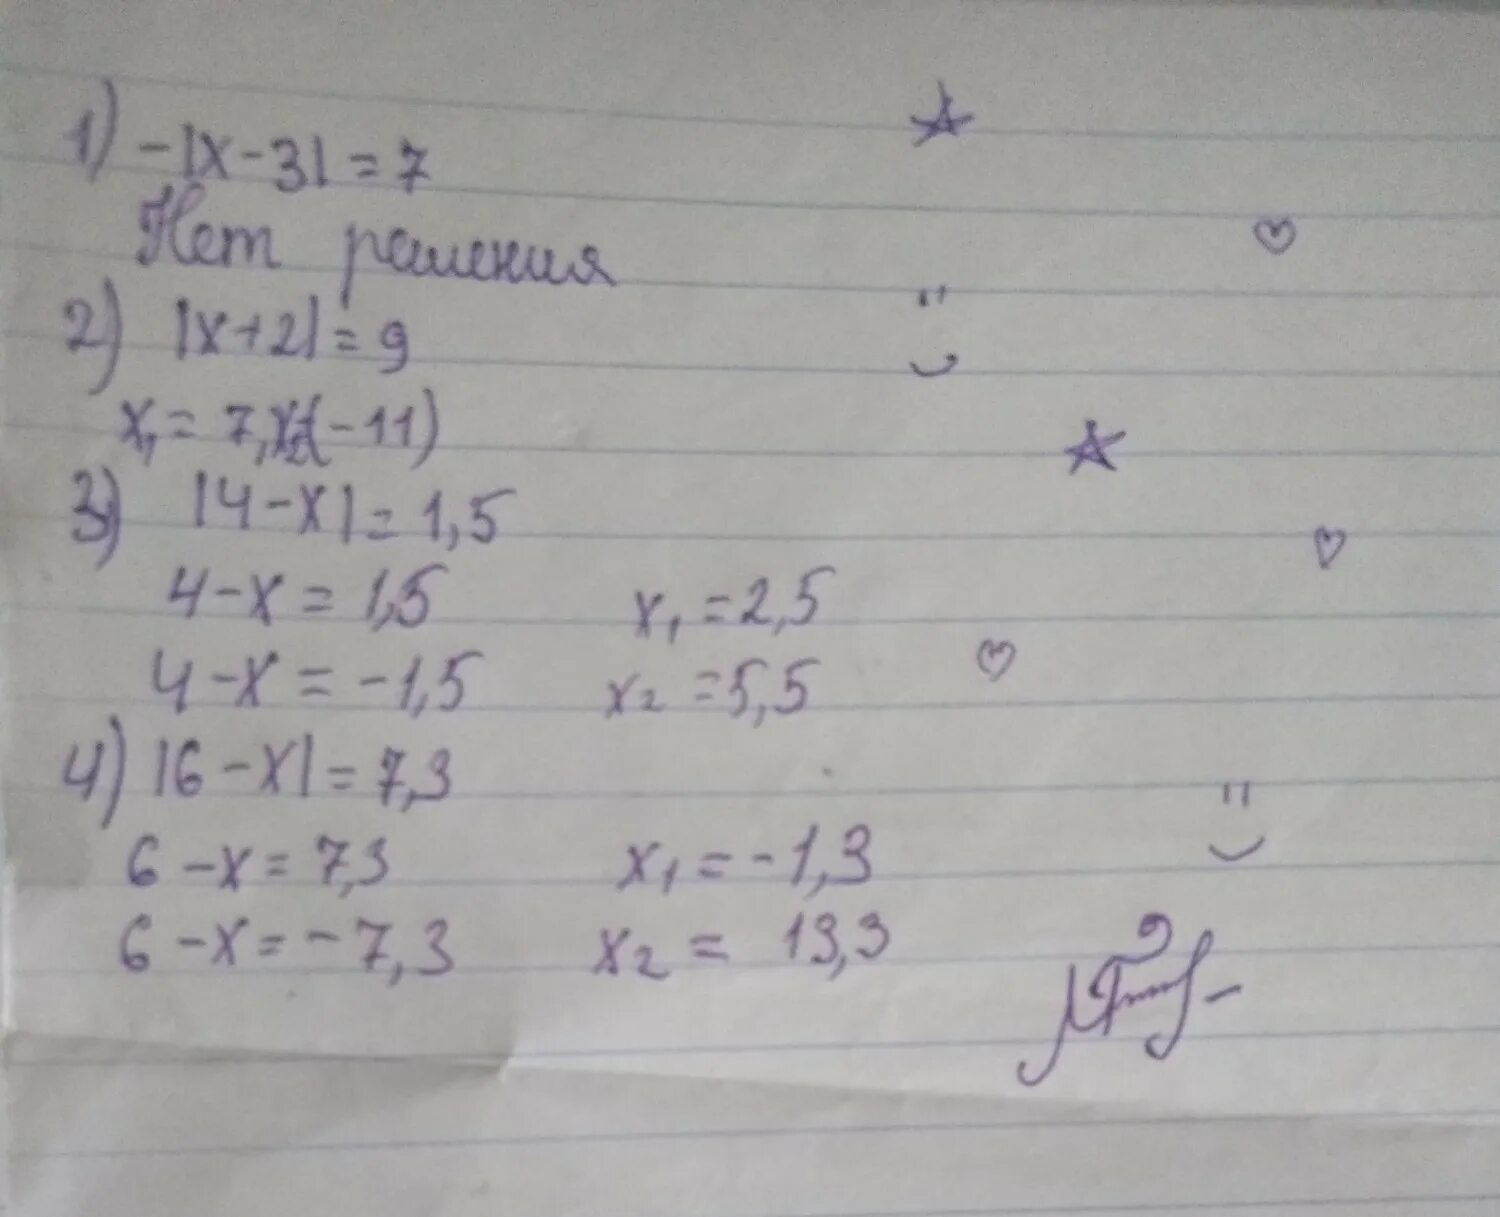 1) -|x-3|=7
Нет решения
2) |x+2|=9
x₁= 7, x₂(-11)
3) |4-x|=1,5
4-x=1,5 x₁=2,5
4-x=-1,5 x₂=5,5
4) |6-x|=7,3
6-x=7,3 x₁=-1,3
6-x=-7,3 x₂= 13,3